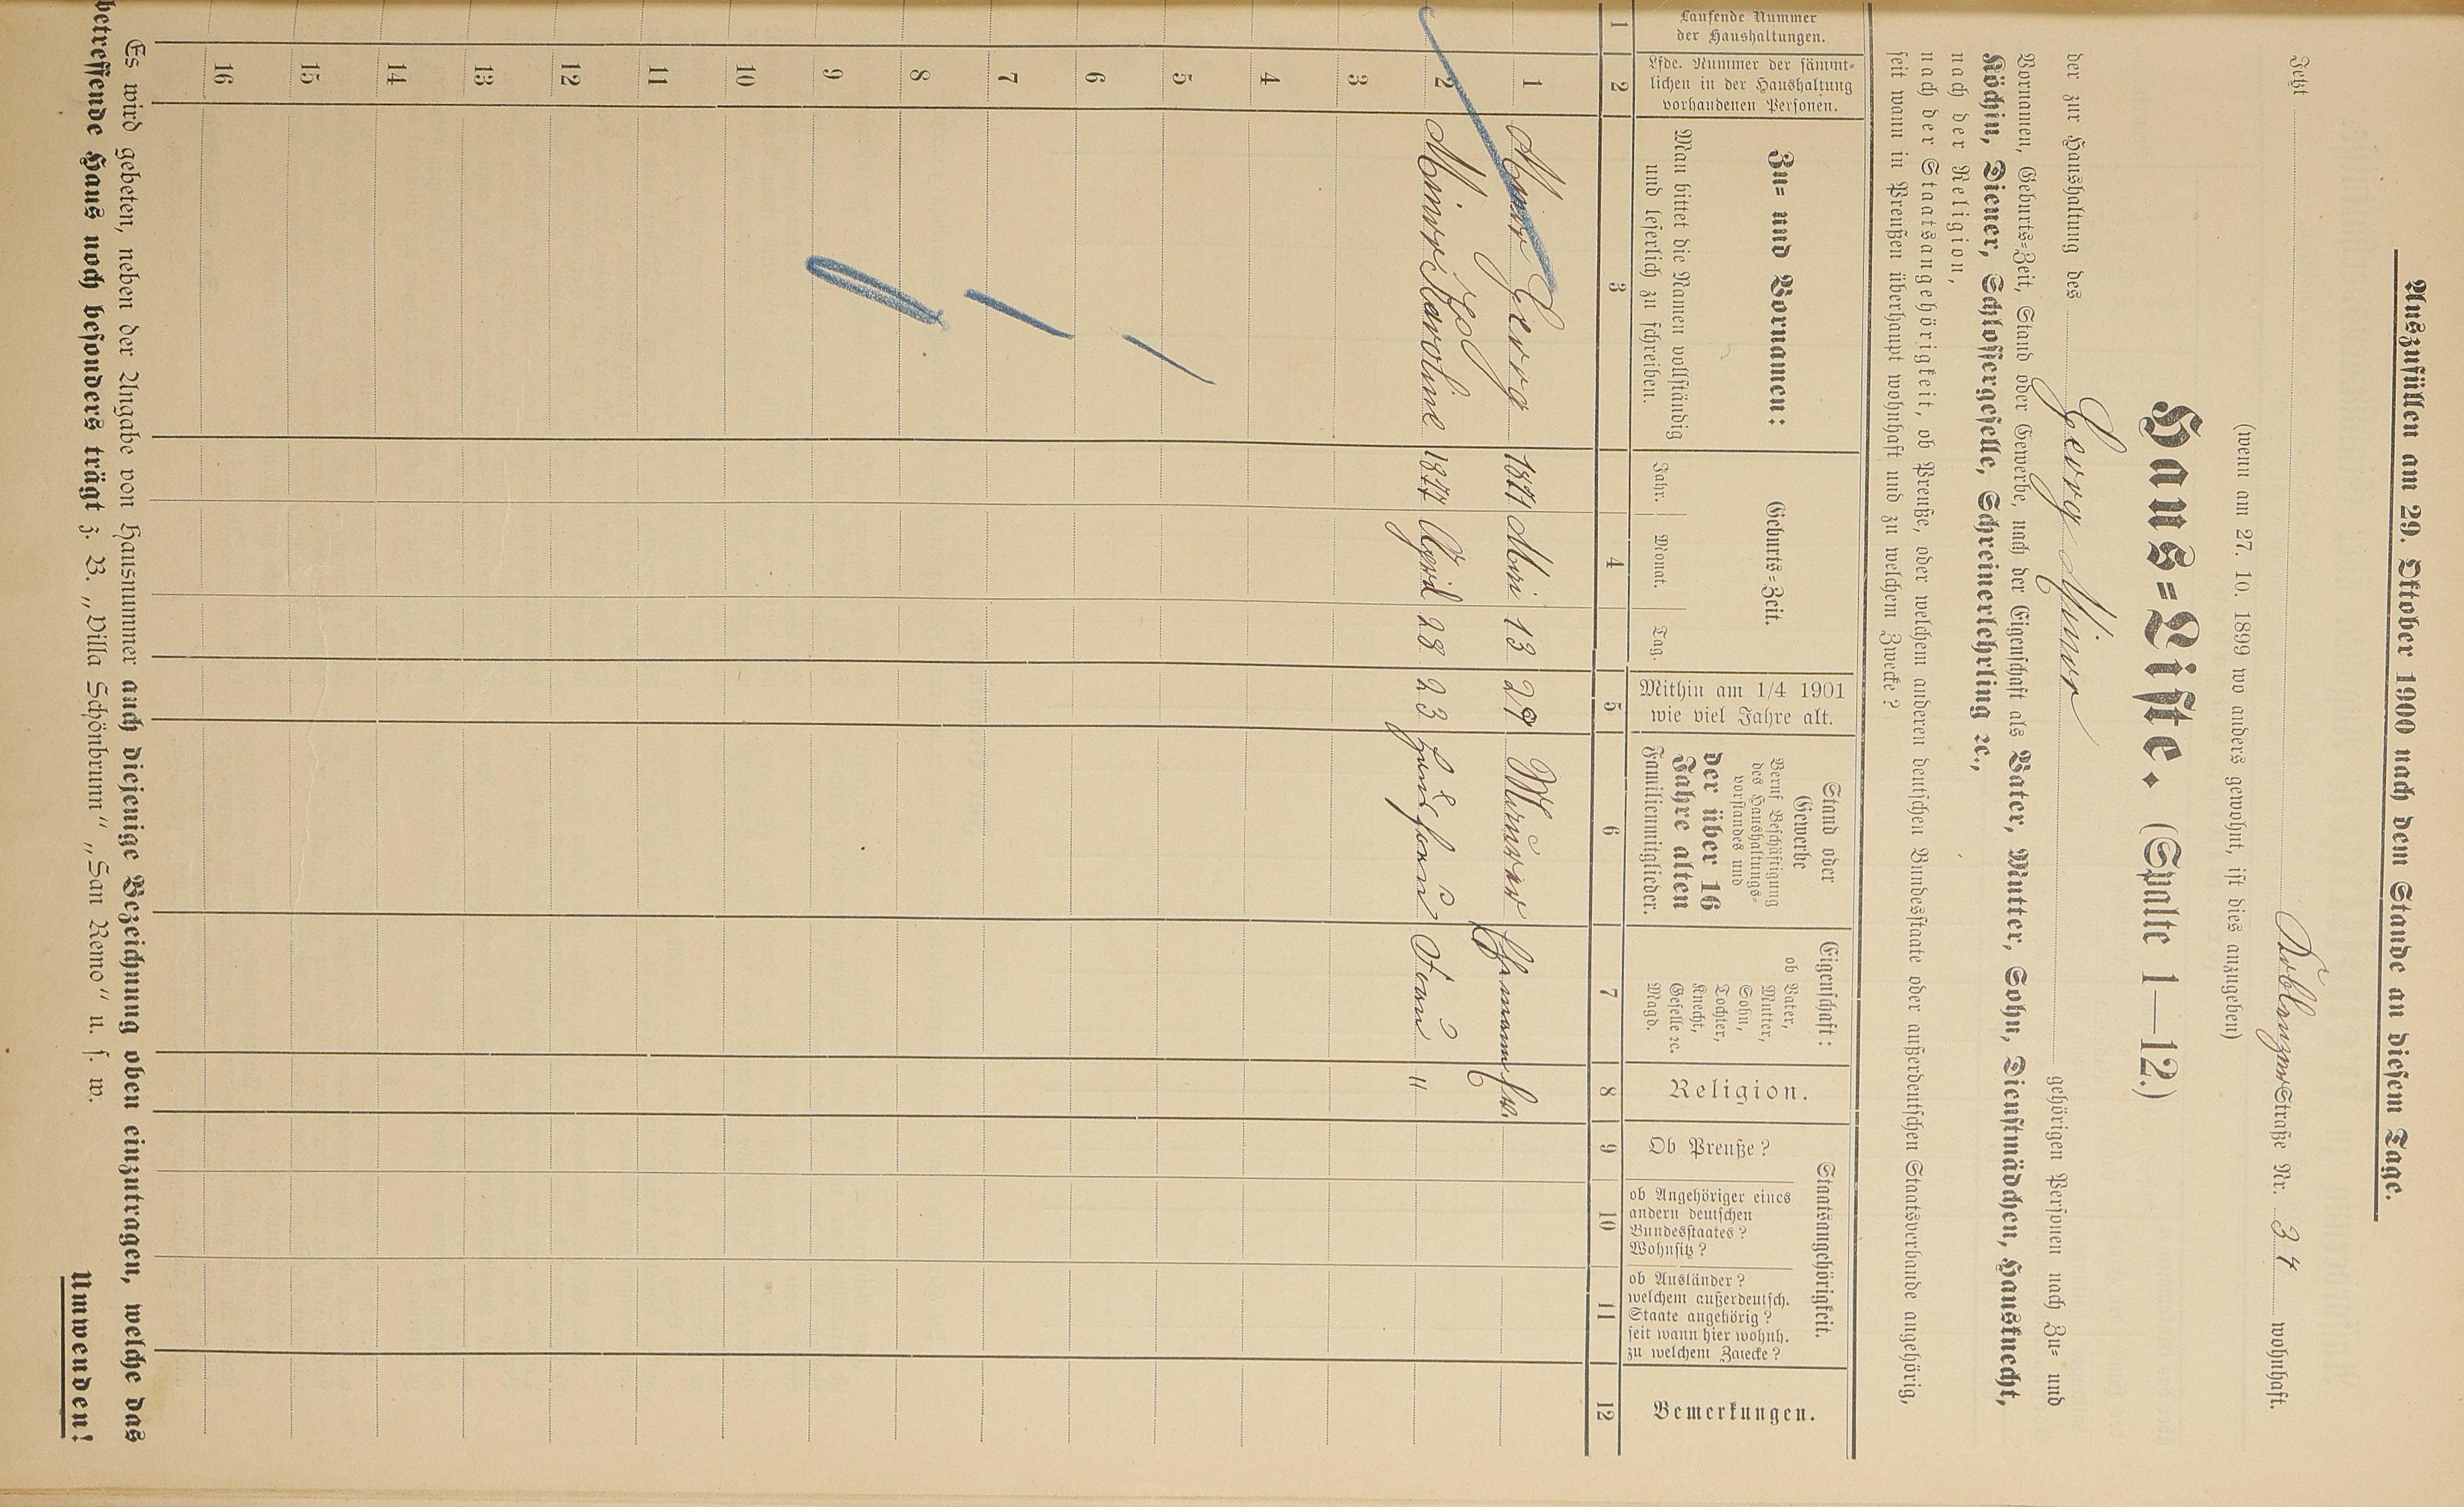 Auszufüllen am 29. Oktober 1900 nach dem Stande an diesem Tage.
Jetzt Koblenzer Straße Nr. 34 wohnhaft.
(wenn am 27. 10. 1899 wo anders gewohnt, ist dies anzugeben)
Haus=Liste. (Spalte 1—12.)
der zur Haushaltung des Georg gehörigen Personen nach Zu= und
Vornamen, Geburts=Zeit, Stand oder Gewerbe, nach der Eigenschaft als Vater, Mutter, Sohn, Dienstmädchen, Hausknecht,
Köchin, Diener, Schlossergeselle, Schreinerlehrling ꝛc.,
nach der Religion,
nach der Staatsangehörigkeit, ob Preuße, oder welchem anderen deutschen Bundesstaate oder außerdeutschen Staatsverbande angehörig,
seit wann in Preußen überhaupt wohnhaft und zu welchem Zwecke?
Laufende Nummer
der Haushaltungen.
Lfde. Nummer der sämmt=
lichen in der Haushaltung
vorhandenen Personen.
Zu= und Vornamen:
Man bittet die Namen vollständig
und leserlich zu schreiben.
Geburts=Zeit.
Jahr. Monat. Tag.
Mithin am 1/4 1901
wie viel Jahre alt.
Stand oder
Gewerbe
Beruf Beschäftigung
des Haushaltungs=
vorstandes und
der über 16
Jahre alten
Familienmitglieder.
Eigenschaft:
ob Vater,
Mutter,
Sohn,
Tochter,
Knecht,
Geselle ꝛc.
Magd.
Religion.
Staatsangehörigkeit.
Ob Preuße?
ob Angehöriger eines
andern deutschen
Bundesstaates?
Wohnsitz?
ob Ausländer?
welchem außerdeutsch.
Staate angehörig?
seit wann hier wohnh.
zu welchem Zwecke?
Bemerkungen.
1 2 3 4 5 6 7 8 9 10 11 12
1 Georg 1871 Mai 13 29 Maurer Ehemann Ev.
2 Karoline 1877 April 28 23 Frau "
3
4
5
6
7
8
9
10
11
12
13
14
15
16
Es wird gebeten, neben der Angabe von Hausnummer auch diejenige Bezeichnung oben einzutragen, welche das
betreffende Haus noch besonders trägt z. B. „Villa Schönbrunn“ „San Remo“ u. s. w.
Umwenden!